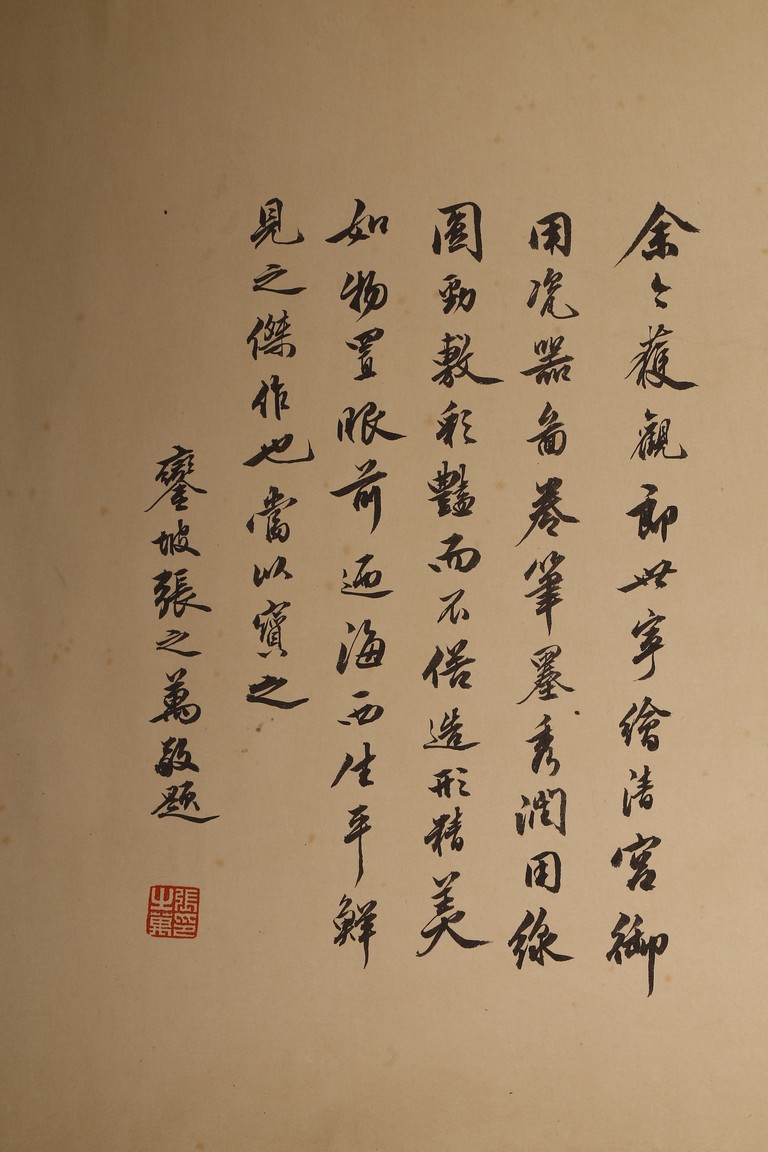 余今獲觀郎世寧繪清宮御
用瓷器畵卷筆墨秀潤用線
圓勁敷彩豔而不俗造形精美
如物置眼前迺海西生平鮮
見之傑作也當以寶之
鑾坡張之萬敬題
張之萬印